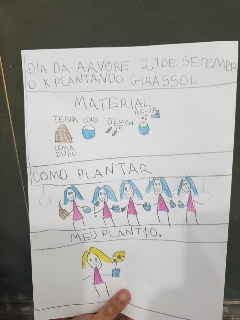 DIA DA ARVORE 21 DE SETEMBR
O X PLANTANDO GIRASSOL
MATERIAL
TERRA COPO SEMEN TE AGUA
UMA
COMO PLANTAR
MEU PLANTIO.